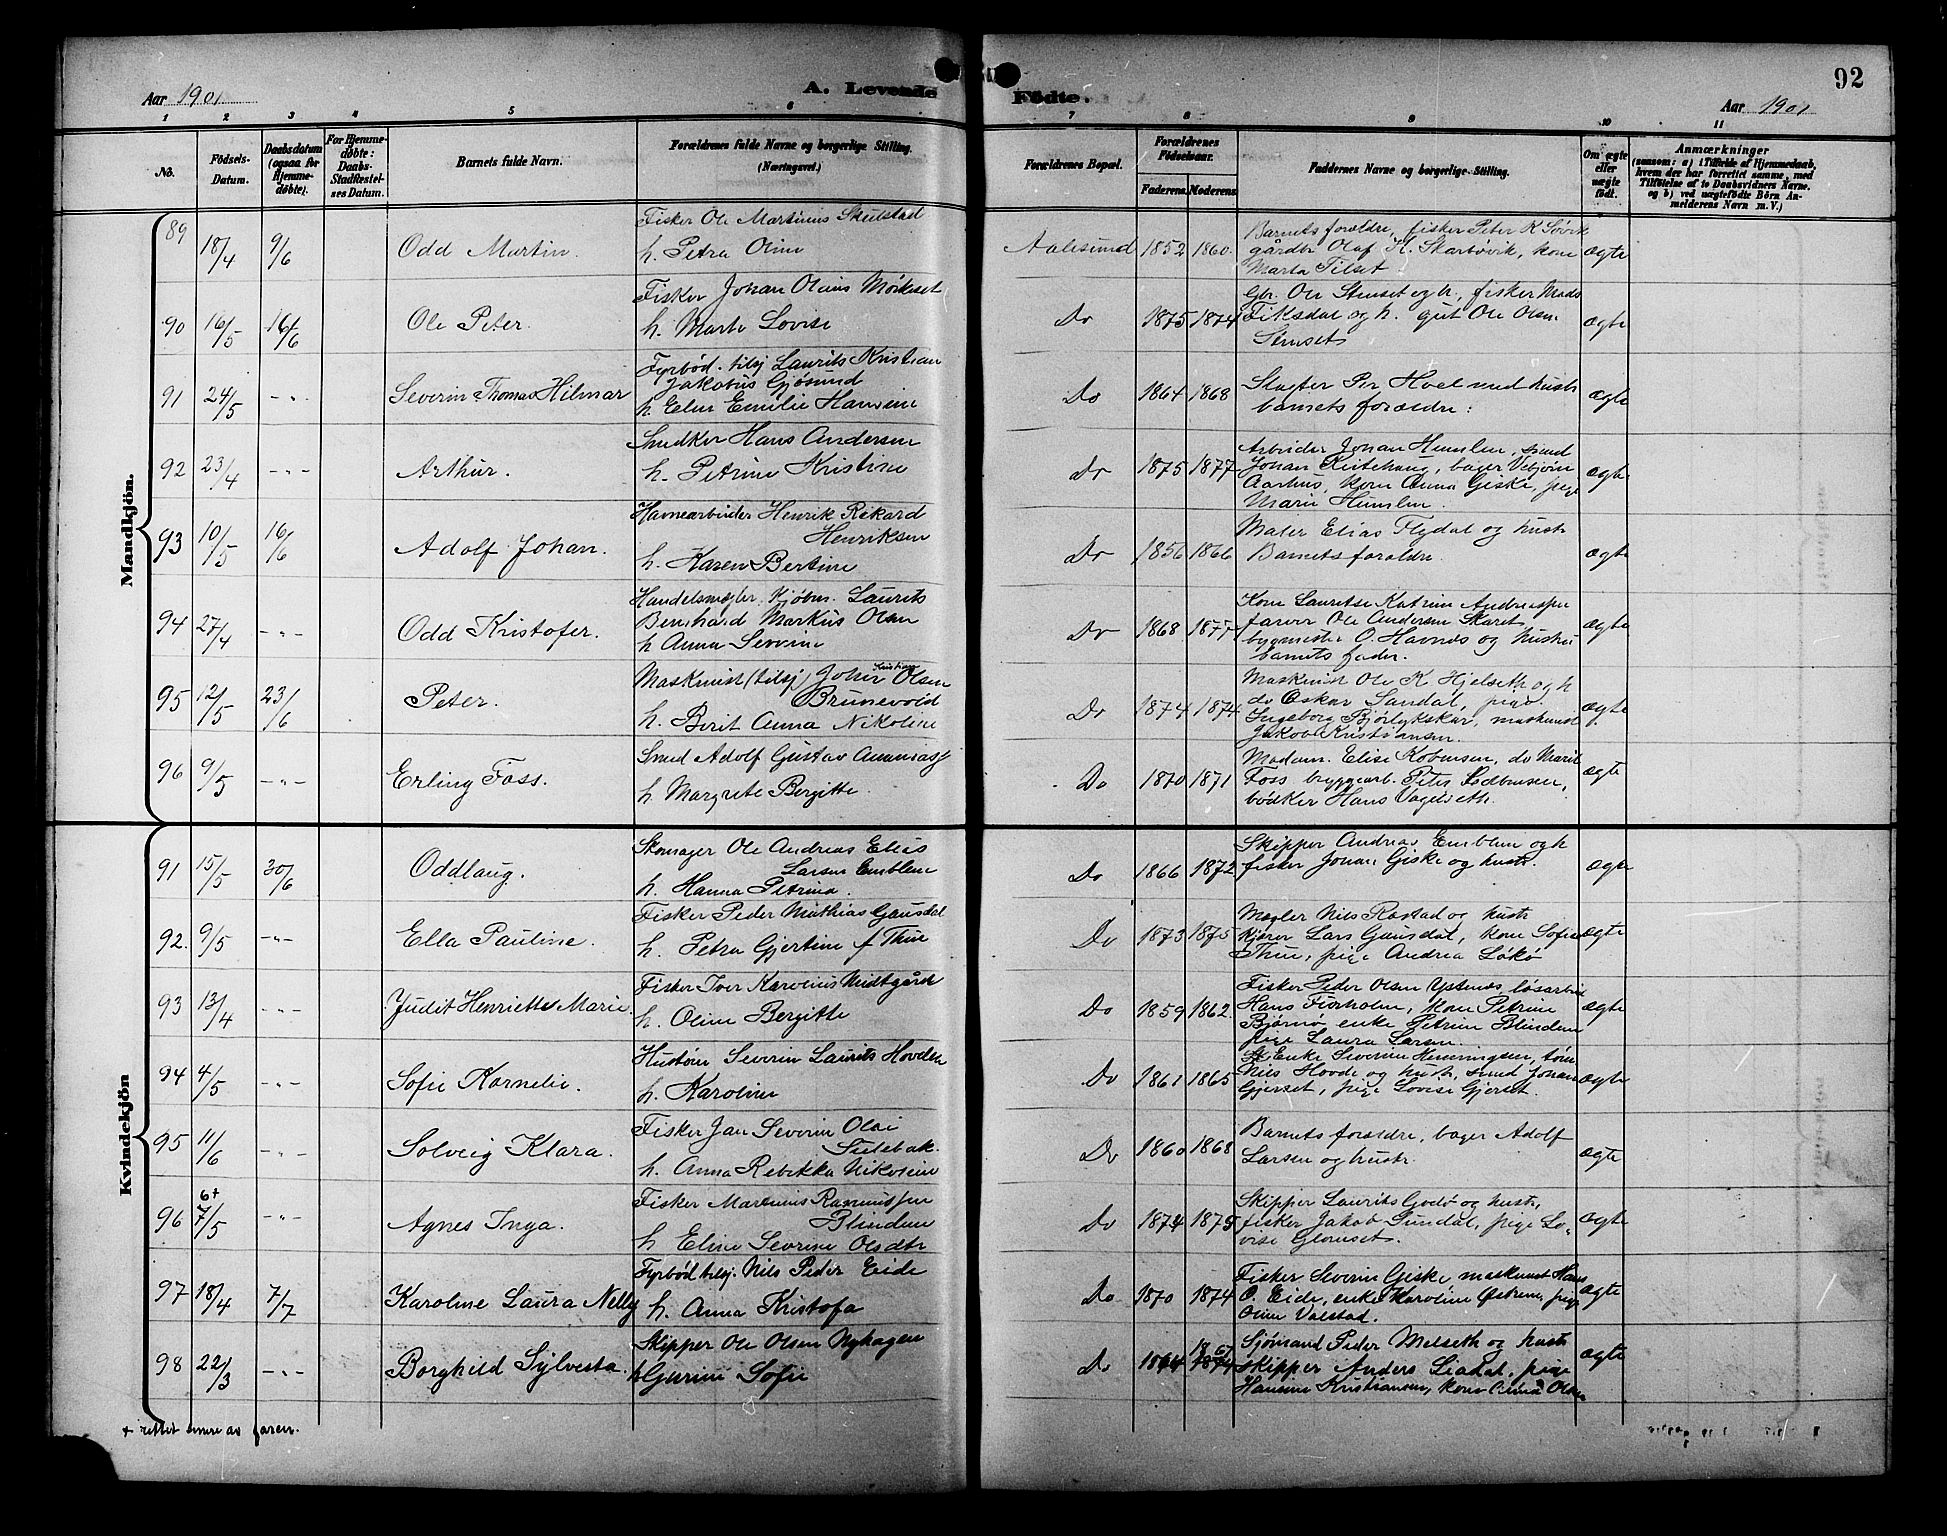 92
Aar 1901
A. Levende
Födte.
Aar 1901
1 2 3 4 5 6 7 8 9 10 11
No.
Födsels-Datum.
Daabsdatum (ogsaa for Hjemme-döbte).
For Hjemme-döbte: Daabs-Stadfæstel-ses Datum.
Barnets fulde Navn.
Forældrenes fulde Navne og borgerlige Stilling.
(Næringsvei.)
Forældrenes Bopæl.
Forældrenes Födselsaar.
Faderens. Moderens.
Faddernes Navne og borgerlige Stilling.
Om ægte eller uægte födt.
Anmærkninger
(saasom: a) i Tilfælde af Hjemmedaab,
hvem der har forrettet samme, med
Tilföielse af to Daabsvidners Navne.
og b) ved uægtefödte Börn An-
melderens Navn m. V.)
Mandkjön.
89 18/4 9/6 Odd Martin. Fisker Ole Martinus Skulstad
h. Petra Oline
Aalesund 1852 1860 Barnets forældre, fisker Peter K Søvik
gårdbr Olaf H. Skarbøvik, kone
Marta Tilset ægte
90 16/5 16/6 Ole Peter. Fisker Johan Olaus Mørkeset
h. Marte Lovise
Do 1875 1874 Gbr. Ole Stenset og h, fisker Mads
Fiksdal og h. gut Ole Olsen
Stenset ægte
91 24/5 -"- Severin Thomas Hilmar Fyrbød. tilsj Laurits Kristian
Jakobus Gjøsund
h Elen Emilie Hansine
Do 1864 1868 Slagter Per Hoel med hustr
barnets forældre. ægte
92 23/4 -"- Arthur. Snedker Hans Andersen
h. Petrine Kristine
Do 1875 1877 Arbeider Johan Humlen, smed
Johan
Aarhus, kone Anna Giske, pige
Marie Humlen ægte
93 10/5 16/6 Adolf Johan. Havnearbeider Henrik Rikard
Henriksen
h. Karen Bertine
Do 1856 1866 Maler Elias Flydal og hustr
Barnets forældre. ægte
94 27/4 -"- Odd Kristofer. Handelsmægler, Kjøbm. Laurits
Bernhard Markus Olsen
h Anna Severine
Do 1868 1877 Kone Lauritse Katrine
farver Ole Andersen Skaret
bygmester O. Havnes og hustru
barnets fader. ægte
95 12/5 23/6 Peter. Maskinist (tilsj) Johan Kristian Olsen
Brunevold
h. Berit Anna Nikoline
Do 1874 1874 Maskinist Ole K. Hjelseth og h
do Oskar Sandal, pige
Ingeborg Bjørlykskar, maskinist
Jakob Kristiansen. ægte
96 9/5 -"- Erling Foss. Smed Adolf Gustav
h. Margrete Bergitte.
Do 1870 1871 Madam. Elise do Marit
Foss bryggearb. Peter
bødker Hans Vagelseth. ægte
Kvindekjön
91 15/5 30/6 Oddlaug. Skomager Ole Andreas Elias
Larsen Emblem
h. Hanna Petrina.
Do 1866 1872 Skipper Andreas Emblem og h
fisker Johan Giske og hustr. ægte
92. 9/5 -"- Ella Pauline. Fisker Peder Mathias Gausdal
h. Petra Gjertine f Thue
Do 1873 1875 Mægler Nils Røstad og hustr
kjører Lars Gausdal, kone Sofie
Thue, pige Andrea Løkø ægte
93 13/4 -"- Judit Henriette Marie. Fisker Iver Karolius Midtgård
h. Oline Bergitte
Do 1859 1862. Fisker Peder Olsen Ystenes, løsarbeid
Hans Fiorholm, kone Petrine
Bjørnø, enke Petrine Blindem
pige Laura Larsen. ægte
94 4/5 -"- Sofie Kornelie. Hustøm Severin Laurits Hovden
h. Karoline
Do 1861 1865 Enke Severine Henningsen, tøm
Nils Hovde og hustr, smed Johan
Gjerset, pige Lovise Gjerset. ægte
95 11/6 -"- Solveig Klara. Fisker Jan Severin Olai
Sulebak
h. Anna Rebekka Nikoline
Do 1860 1868 Barnets forældre, bager Adolf
Larsen og hustr. ægte
96 6+ 7/5 -"- Agnes Inga. Fisker Martinus Rasmussen
Blindem
h Eline Severine Olsdtr
Do 1874 1875 Skipper Laurits Godø og hustr,
fisker Jakob Sundal, pige Lo-
vise Glomset. ægte
97 18/4 7/7 Karoline Laura Nelly Fyrbød tilsj. Nils Peder Eide
h. Anna Kristofa
Do 1870 1874 Fisker Severin Giske, maskinist Hans
O. Eide, enke Karoline Østrem, pige
Oline Valstad. ægte
98 22/3 -"- Borghild Sylvesta. Skipper Ole Olsen Nyhagen
h Gurine Sofie
Do 1864 1867 Sjømand Peder Melseth og hustr
skipper Anders Liadal, pige
Hansine Kristiansen, kone Olsen ægte
+ rettet senere av faren.